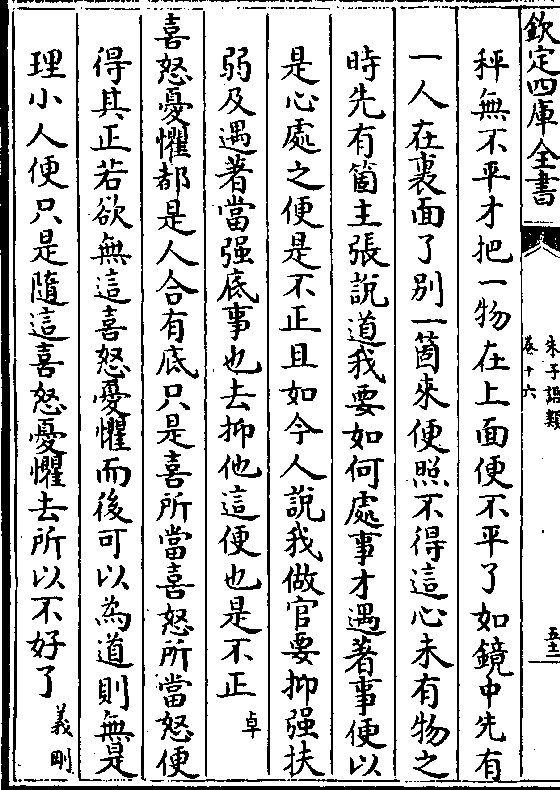 欽定四庫全書
朱子語類
卷十六
秤無不平才把一物在上面便不平了如鏡中先有
一人在裏面了別一箇來便照不得這心未有物之
時先有箇主張說道我要如何處事才遇著事便以
是心處之便是不正且如今人說我做官要抑强扶
弱及遇著當强底事也去抑他這便也是不正卓
喜怒憂懼都是人合有底只是喜所當喜怒所當怒便
得其正若欲無這喜怒憂懼而後可以為道則無是
理小人便只是隨這喜怒憂懼去所以不好了義剛